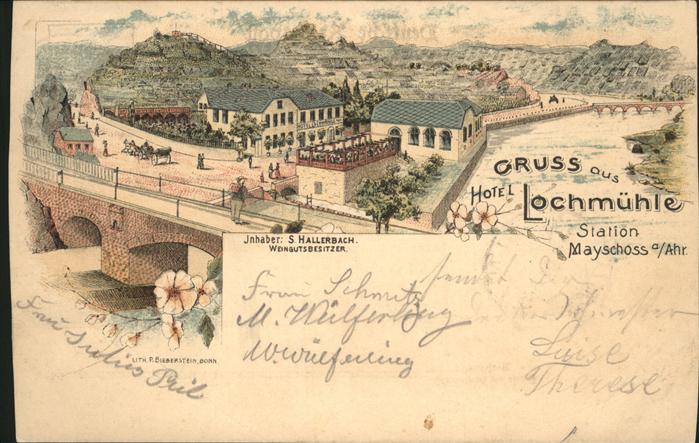 GRUSS aus
HOTEL Lochmühle
Station
Mayschoss a/Ahr.
Jnhaber: S. HALLERBACH.
WEINGUTSBESITZER.
LITH. P. BIEBERSTEIN, BONN.
sendet Dir
Frau Schmitz
M. Wülferling
Schwester
W. Wülfering
Luise
Therese
Frau Julius